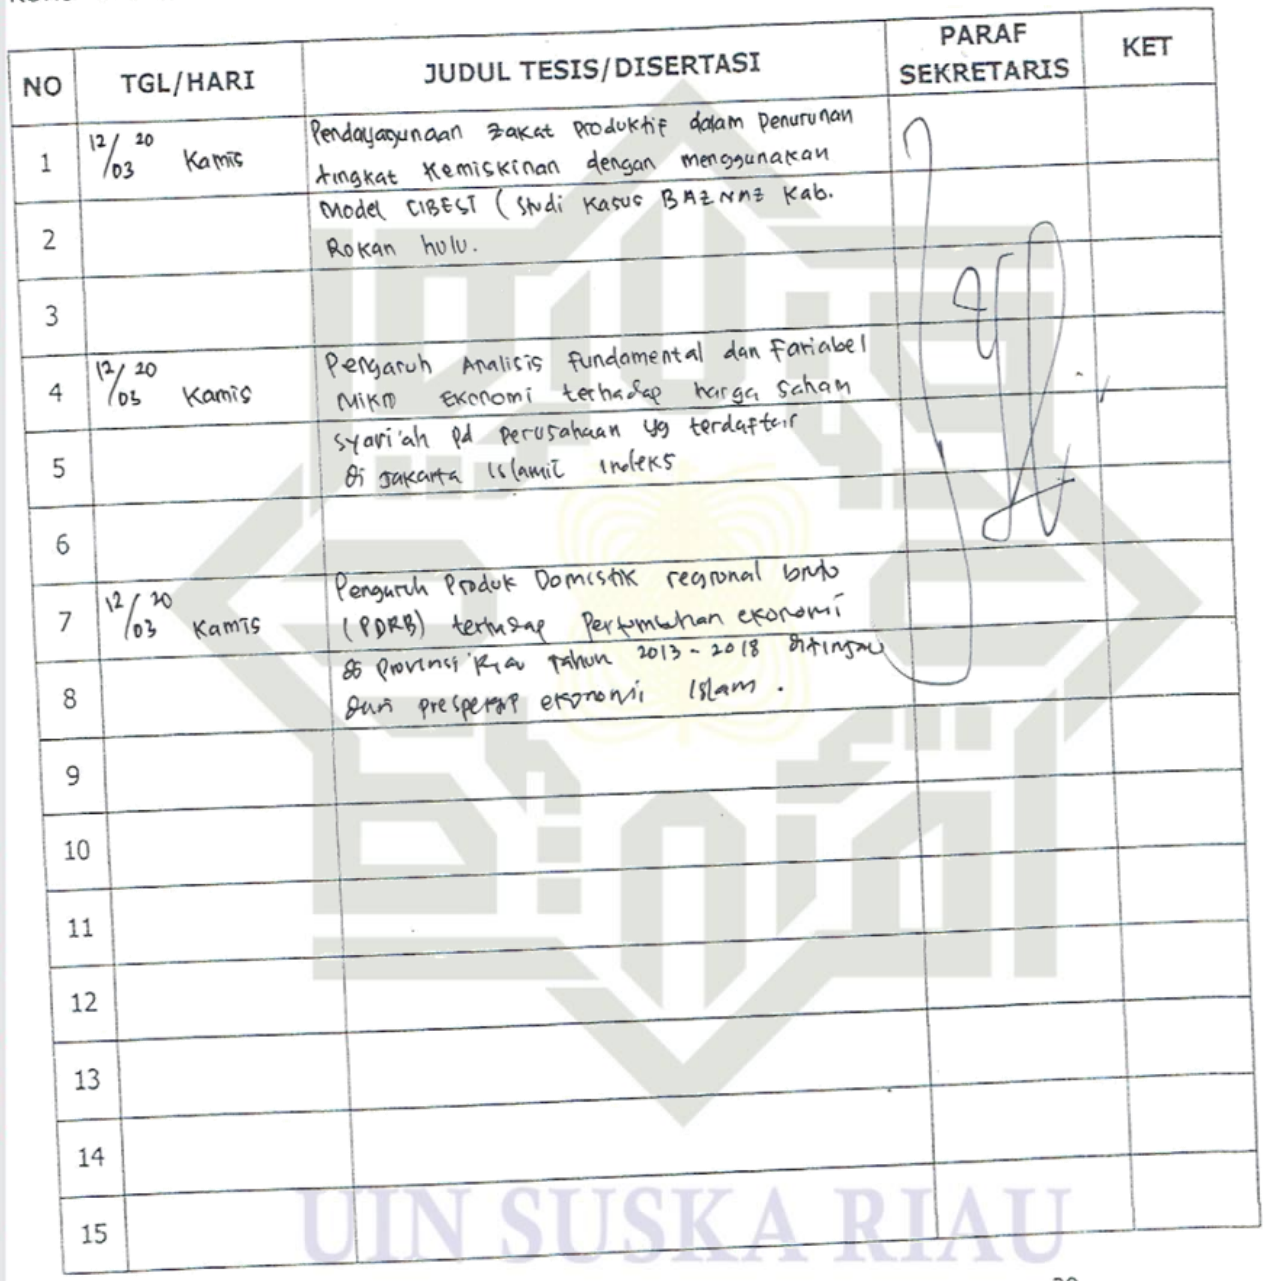 NO TGL/HARI JUDUL TESIS/DISERTASI PARAF SEKRETARIS KET
1 12/03 20 Kamis Pendayagunaan zakat produktif dalam penurunan
tingkat Kemiskinan dengan menggunakan
2 Model CIBEST ( Studi Kasus BAZNAZ Kab.
Rokan hulu.
3
4 12/03 20 Kamis Pengaruh Analisis fundamental dan Fariabel
Mikro Ekonomi terhadap harga saham
5 syari'ah pd perusahaan yg terdaftar
di Jakarta Islamic Indeks
6
7 12/03 20 Kamis Pengaruh Produk Domistik regional bruto
(PDRB) terhadap Pertumbuhan ekonomi
8 di Provinsi Riau tahun 2013-2018 ditinjau
dari prespektif ekonomi Islam.
9
10
11
12
13
14
15
UIN SUSKA RIAU